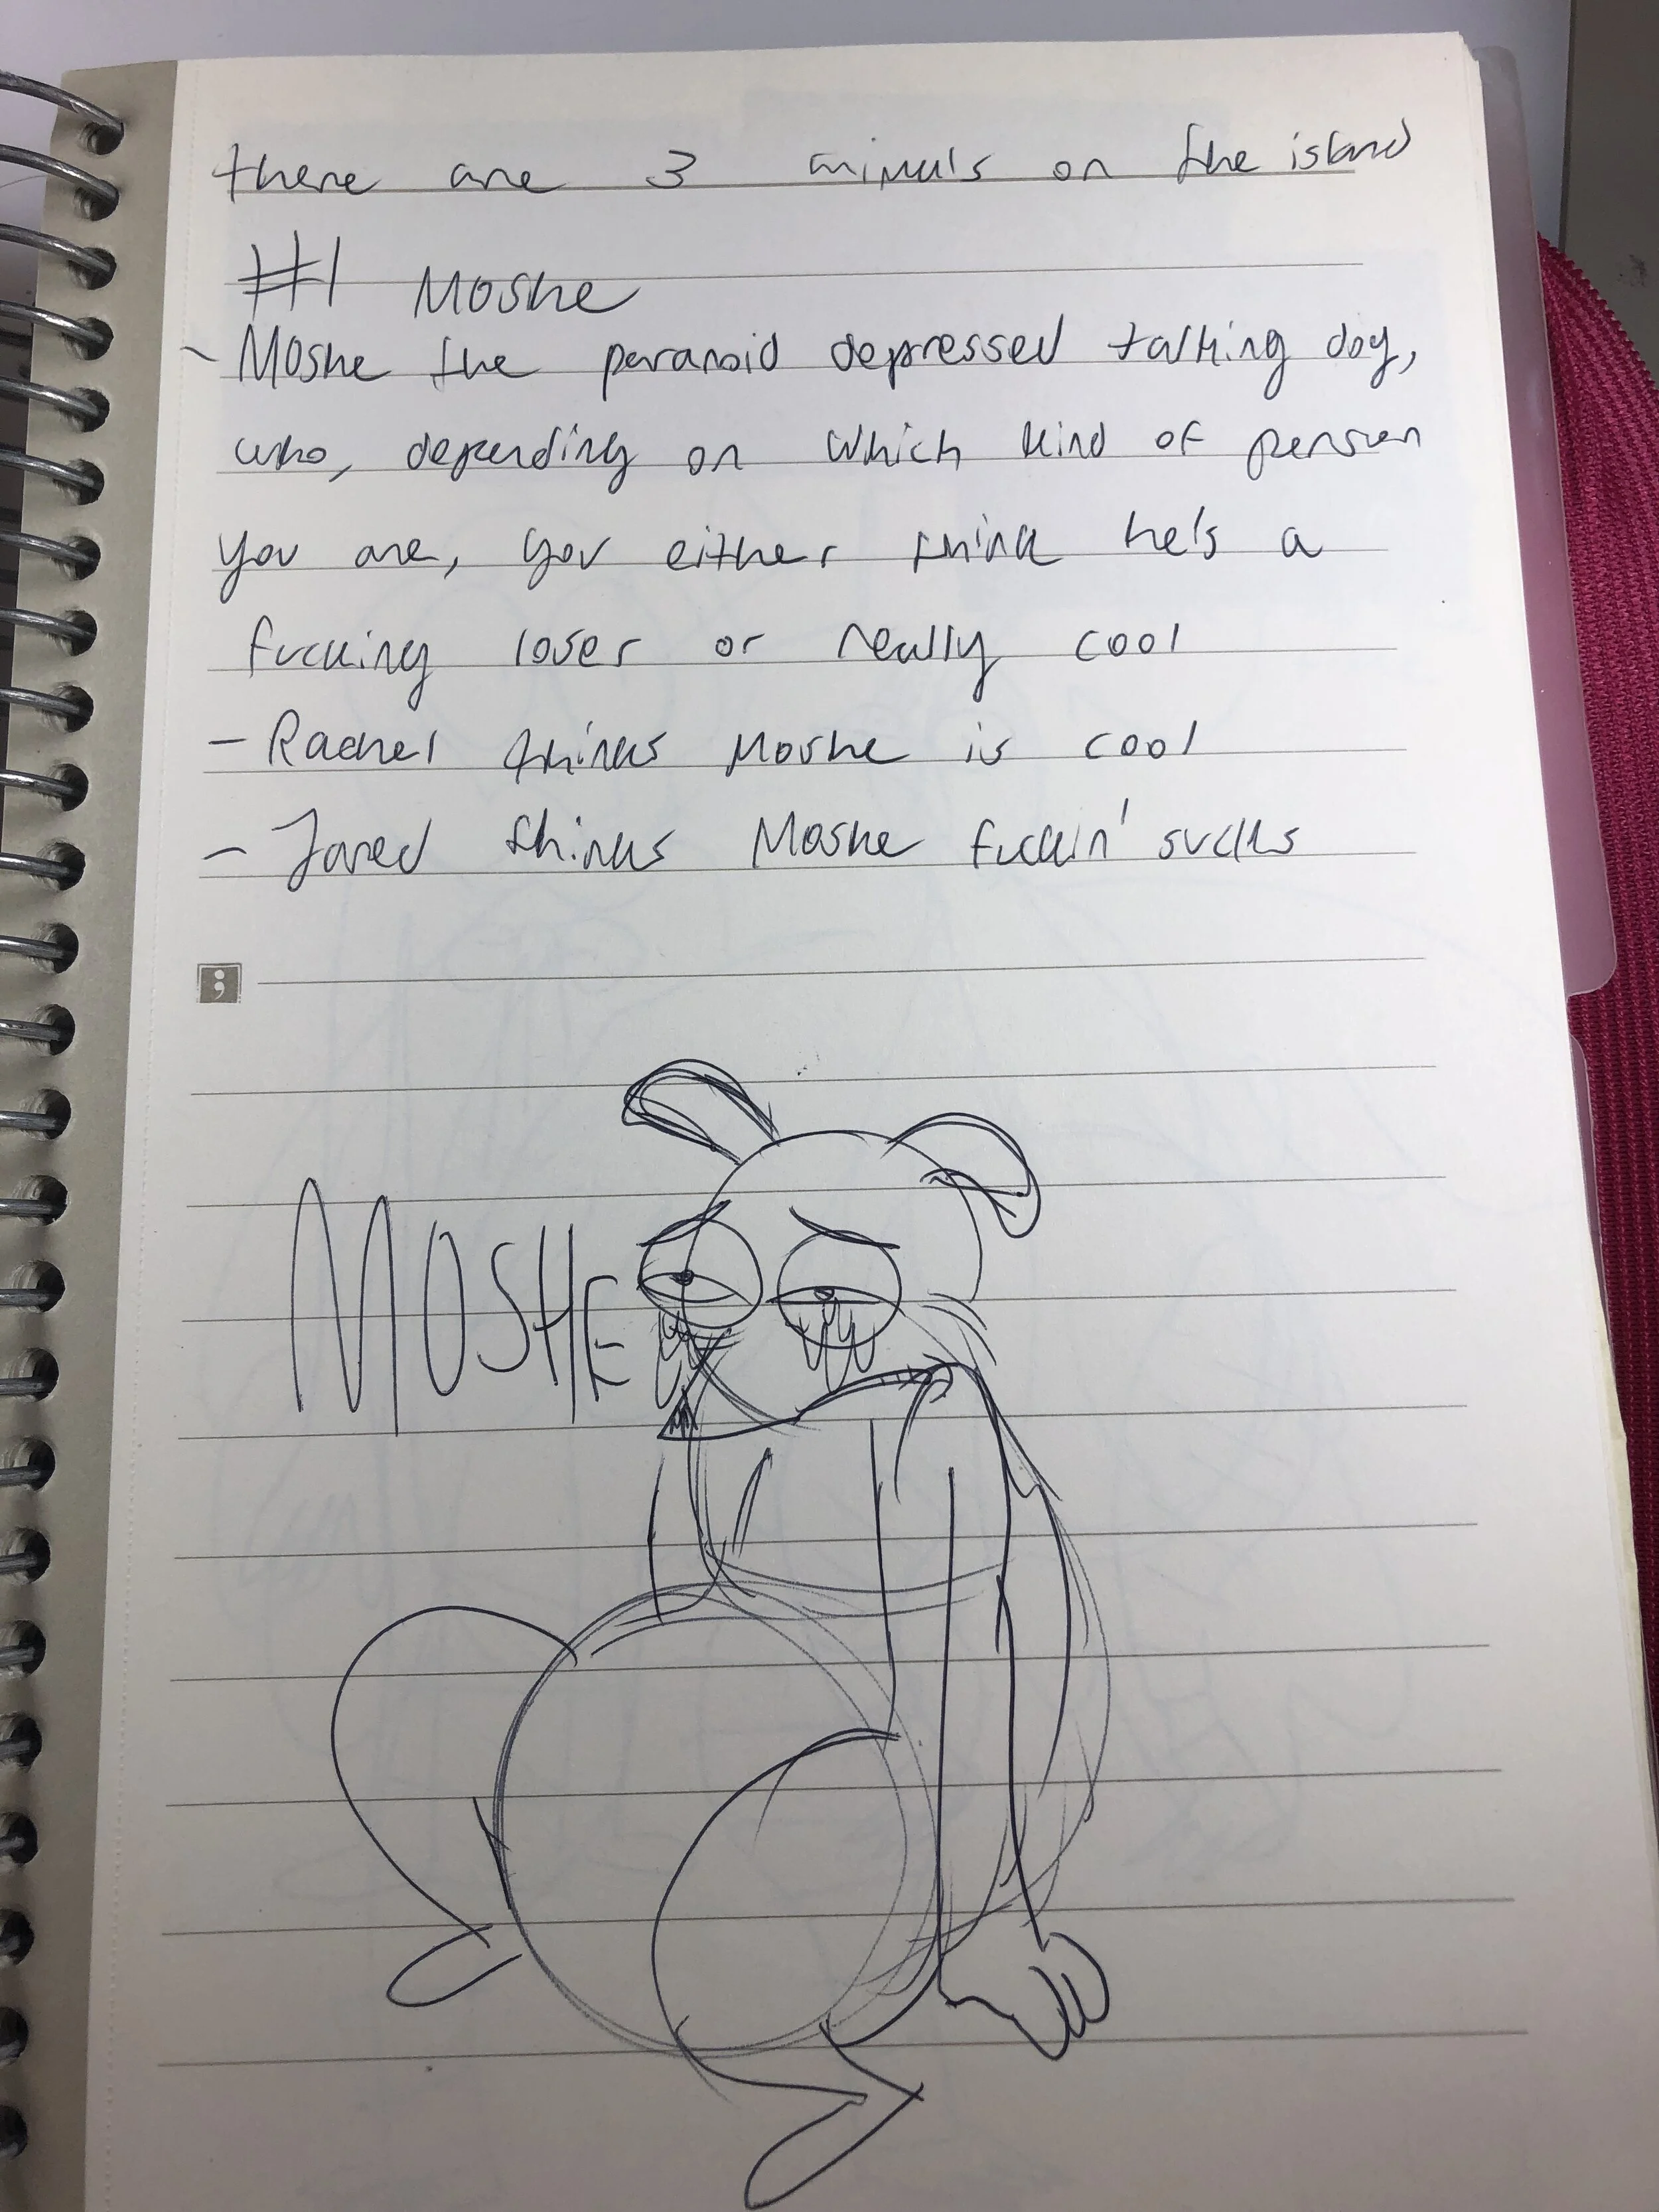 there are 3 animals on the island
#1 Moshe
- Moshe the paranoid depressed talking dog,
who, depending on which kind of person
you are, you either think he's a
fucking loser or really cool
- Rachel thinks Moshe is cool
- Jared thinks Moshe fuckin' sucks
;
MOSHE